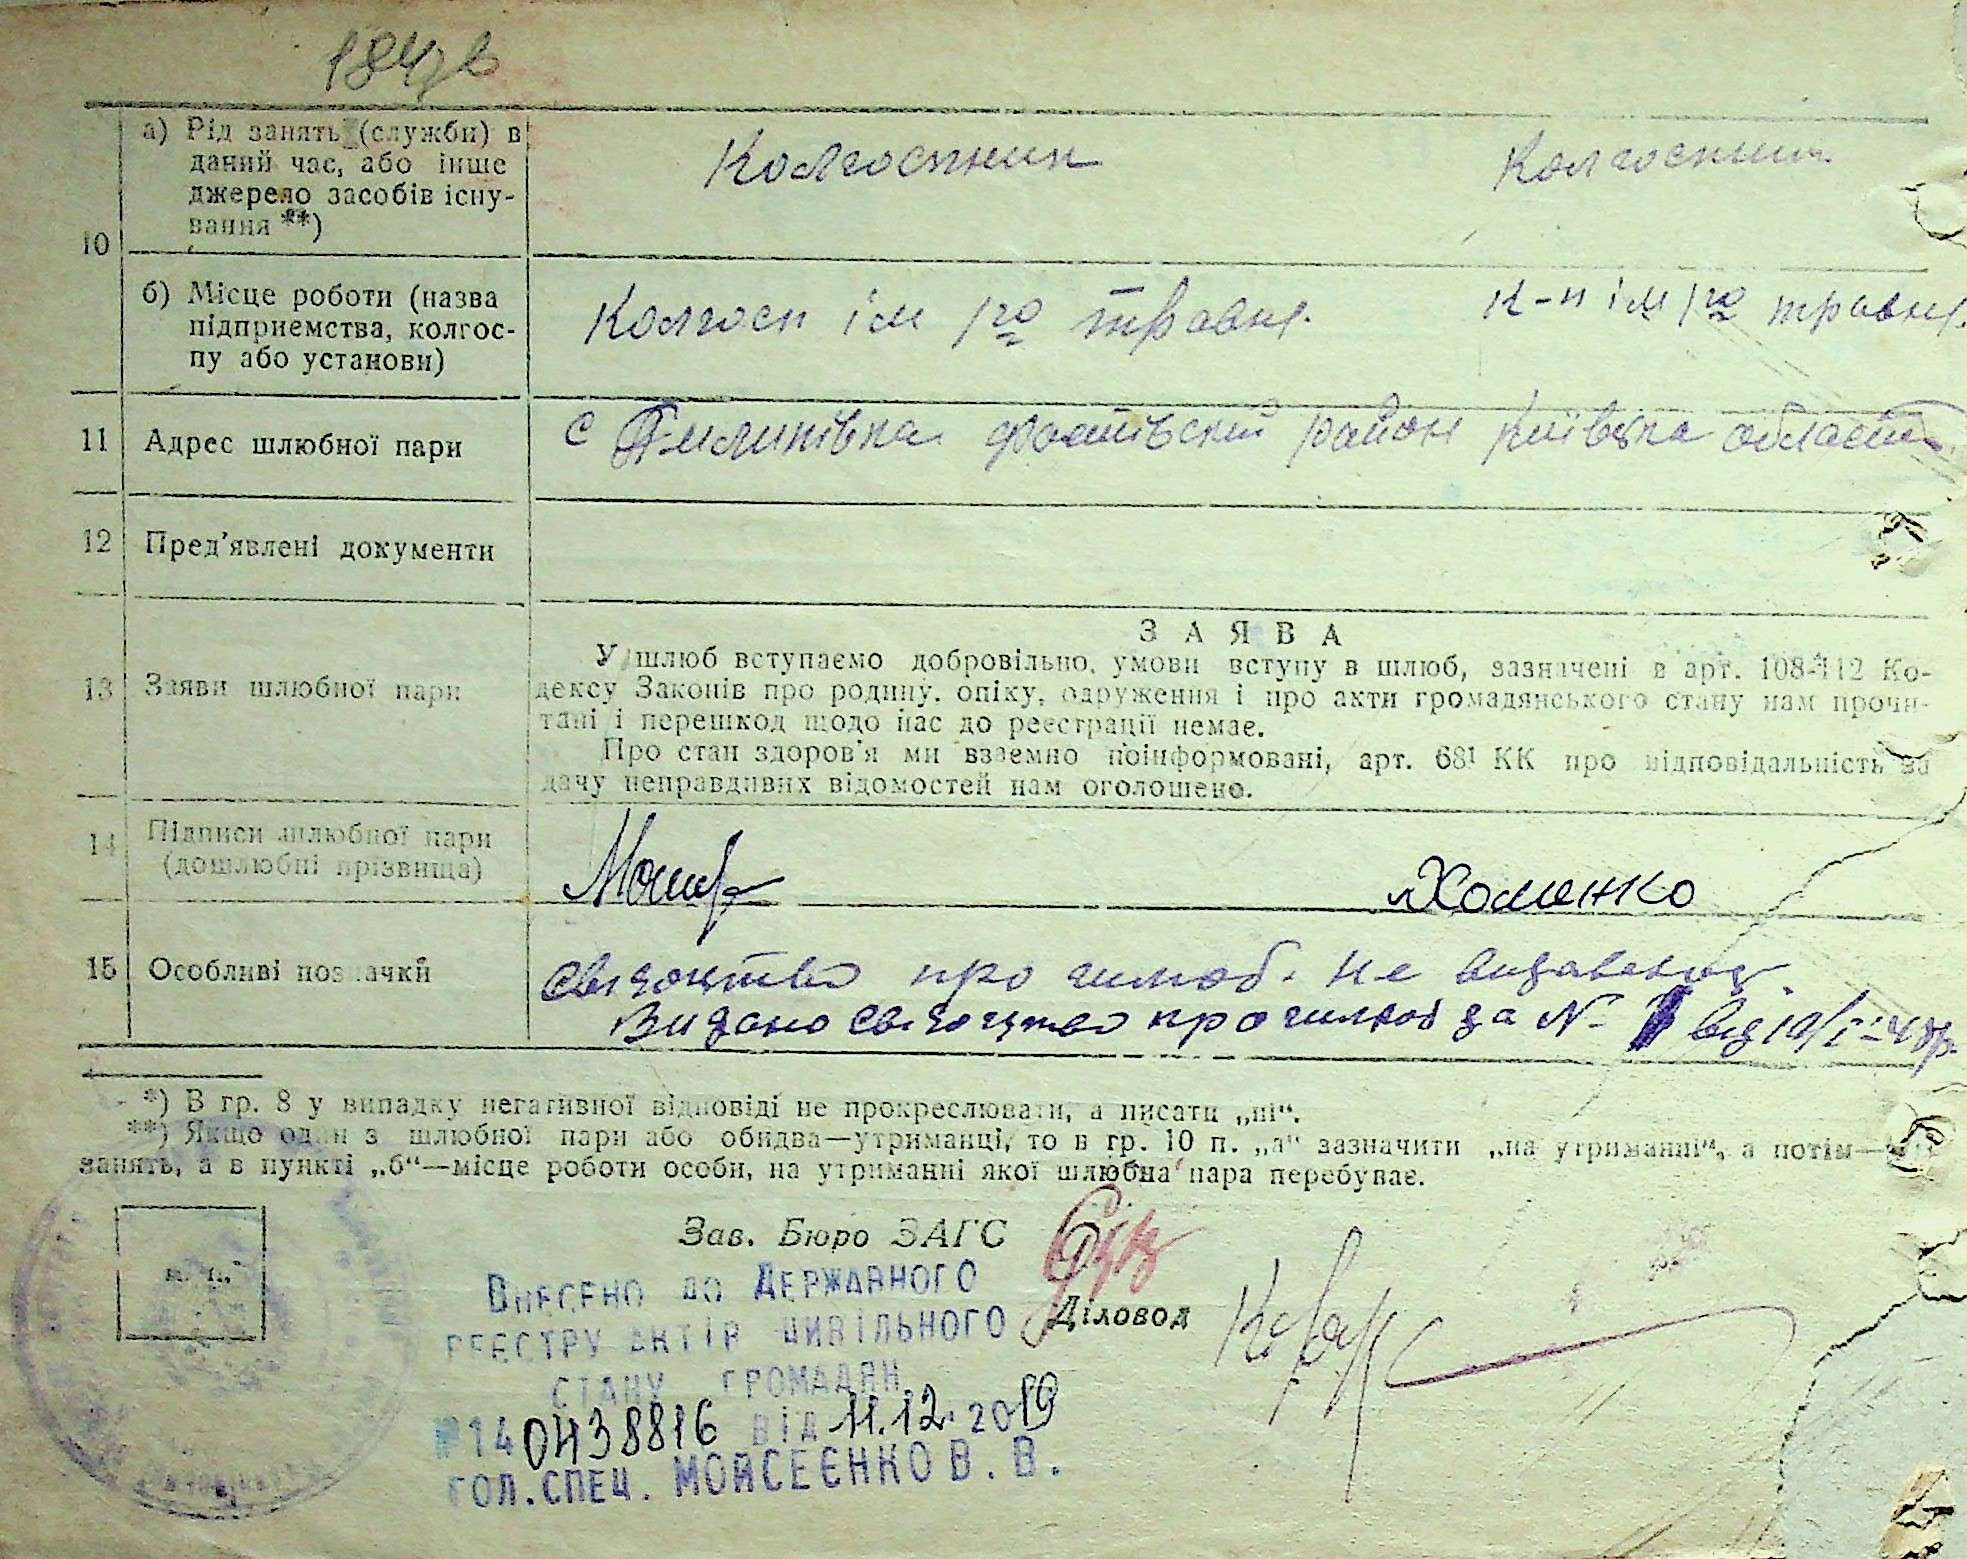 184зв
10
а) Рід занять (служби) в
даний час, або інше
джерело засобів існу-
вання **)
Колгоспник
Колгоспник
б) Місце роботи (назва
підприємства, колгос-
пу або установи)
Колгосп ім 1го травня.
к-п ім 1го травня.
11
Адрес шлюбної пари
с Пилипівка Фастівский район Київска область
12
Пред'явлені документи
13
Заяви шлюбної пари
ЗАЯВА
У шлюб вступаємо добровільно, умови вступу в шлюб, зазначені в арт. 108-112 Ко-
дексу Законів про родину, опіку, одруження і про акти громадянського стану нам прочи-
тані і перешкод щодо нас до реєстрації немає.
Про стан здоров'я ми взаємно поінформовані, арт. 68¹ КК про відповідальність за
дачу неправдивих відомостей нам оголошено.
14
Підписи шлюбної пари
(дошлюбні прізвища)
Хоменко
15
Особливі позначки
Свідоцтво про шлюб. не видавалось.
Видано свідоцтво про шлюб за №
від 19/I-48р.
*) В гр. 8 у випадку негативної відповіді не прокреслювати, а писати „ні“.
**) Якщо один з шлюбної пари або обидва—утриманці, то в гр. 10 п. „а“ зазначити „на утриманні“, а потім—
занять, а в пункті „б“—місце роботи особи, на утриманні якої шлюбна пара перебуває.
м. п.
Зав. Бюро ЗАГС
Діловод
Внесено до Державного
реєстру актів цивільного
стану громадян
№ 140438816 від 11.12.2019
гол.спец. Мойсеєнко В. В.